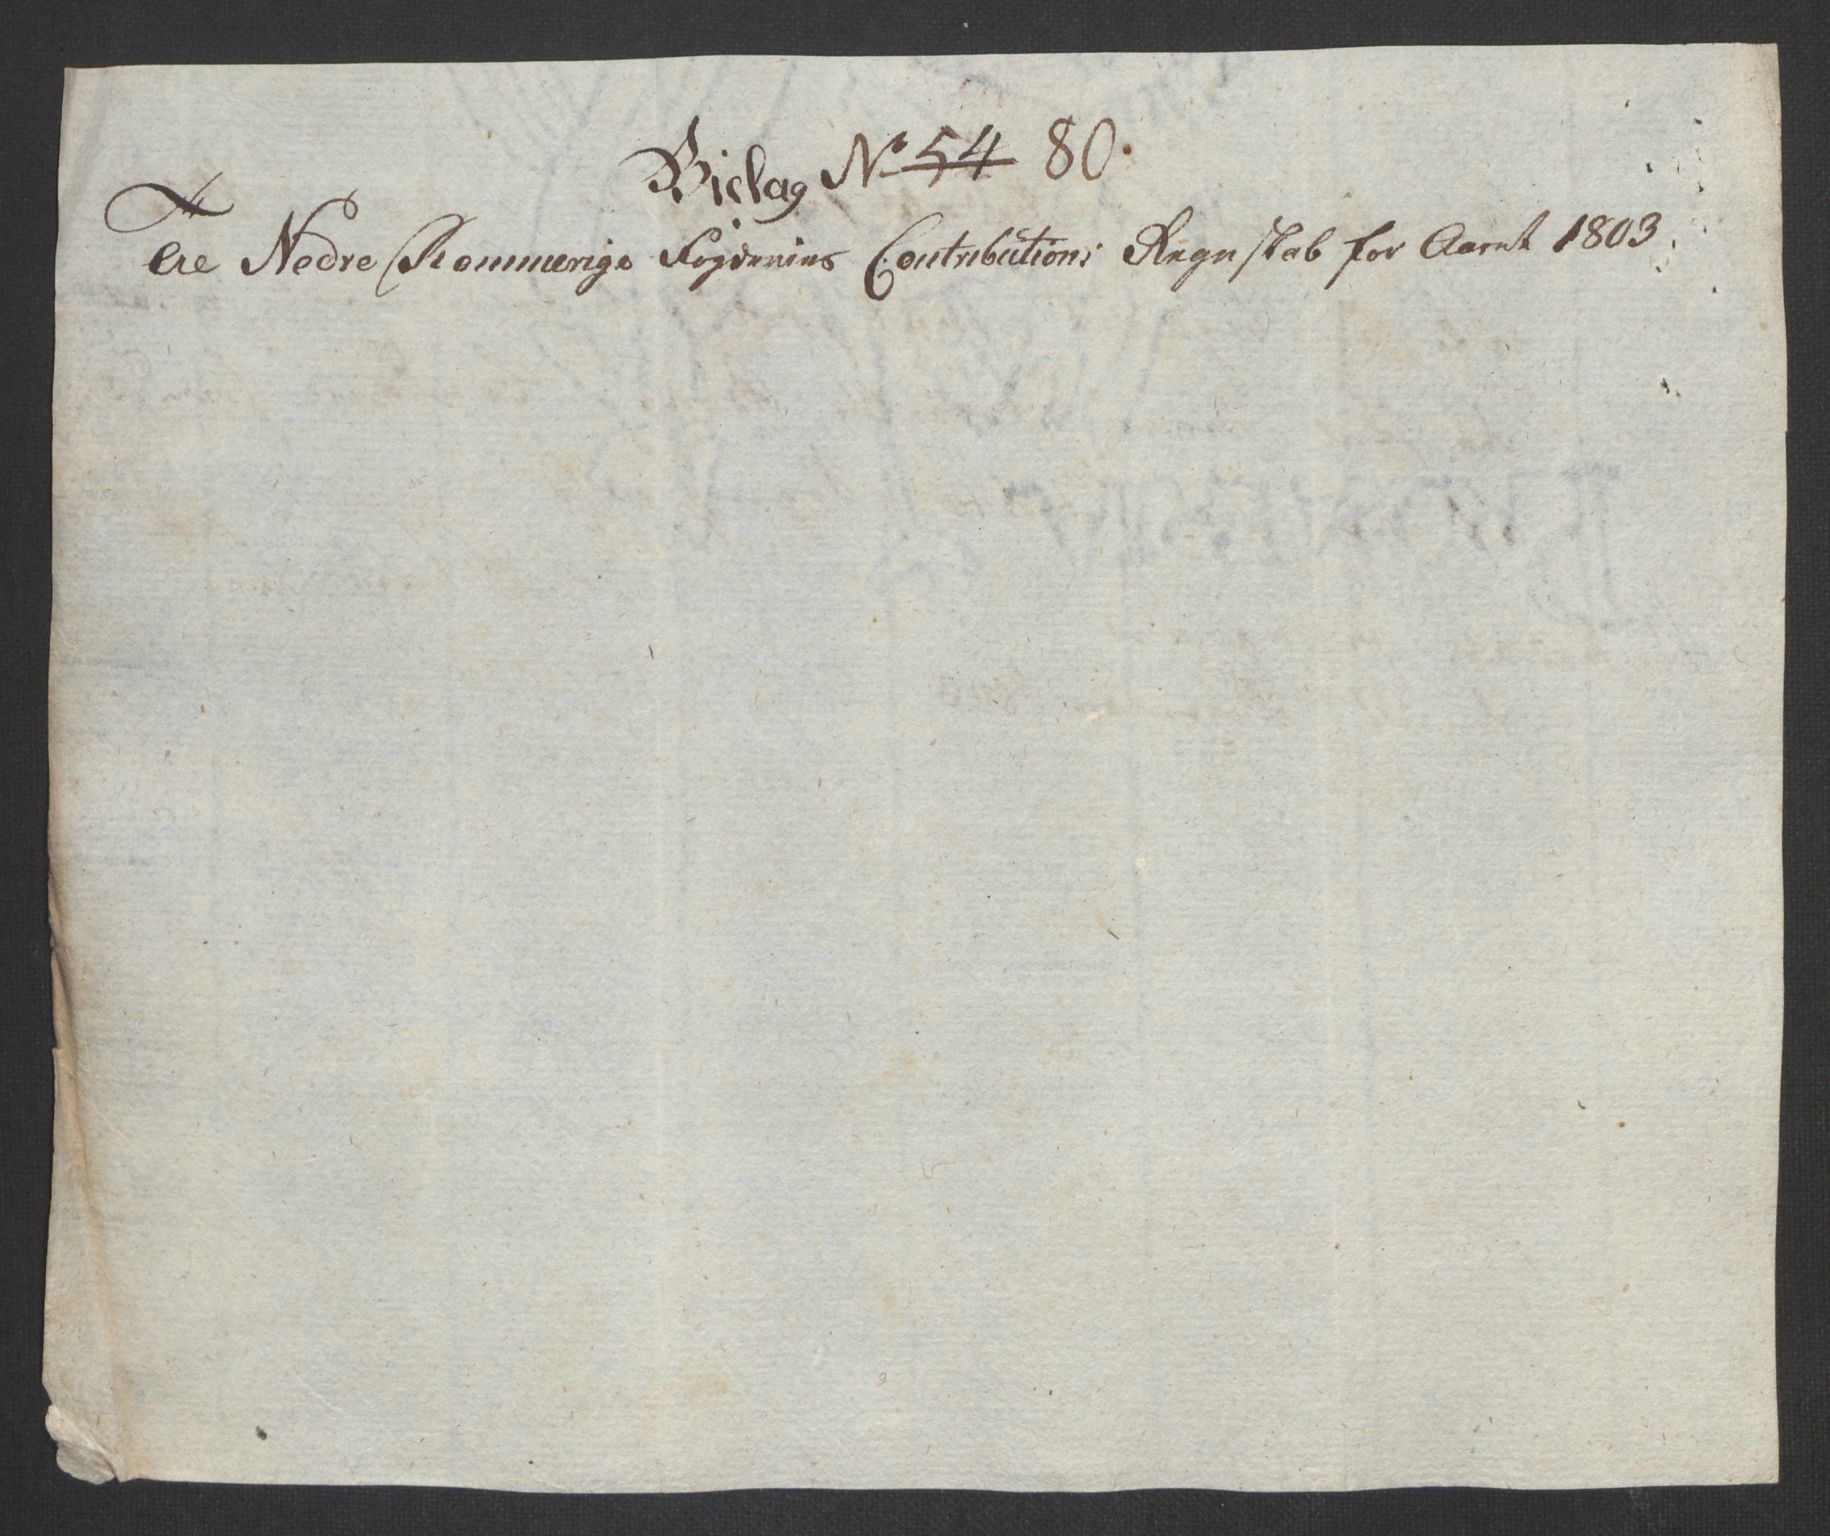 Bielag No 54 80.
Nedre Rommerigs Fogderies Contributions Regnskab for Aaret 1803.